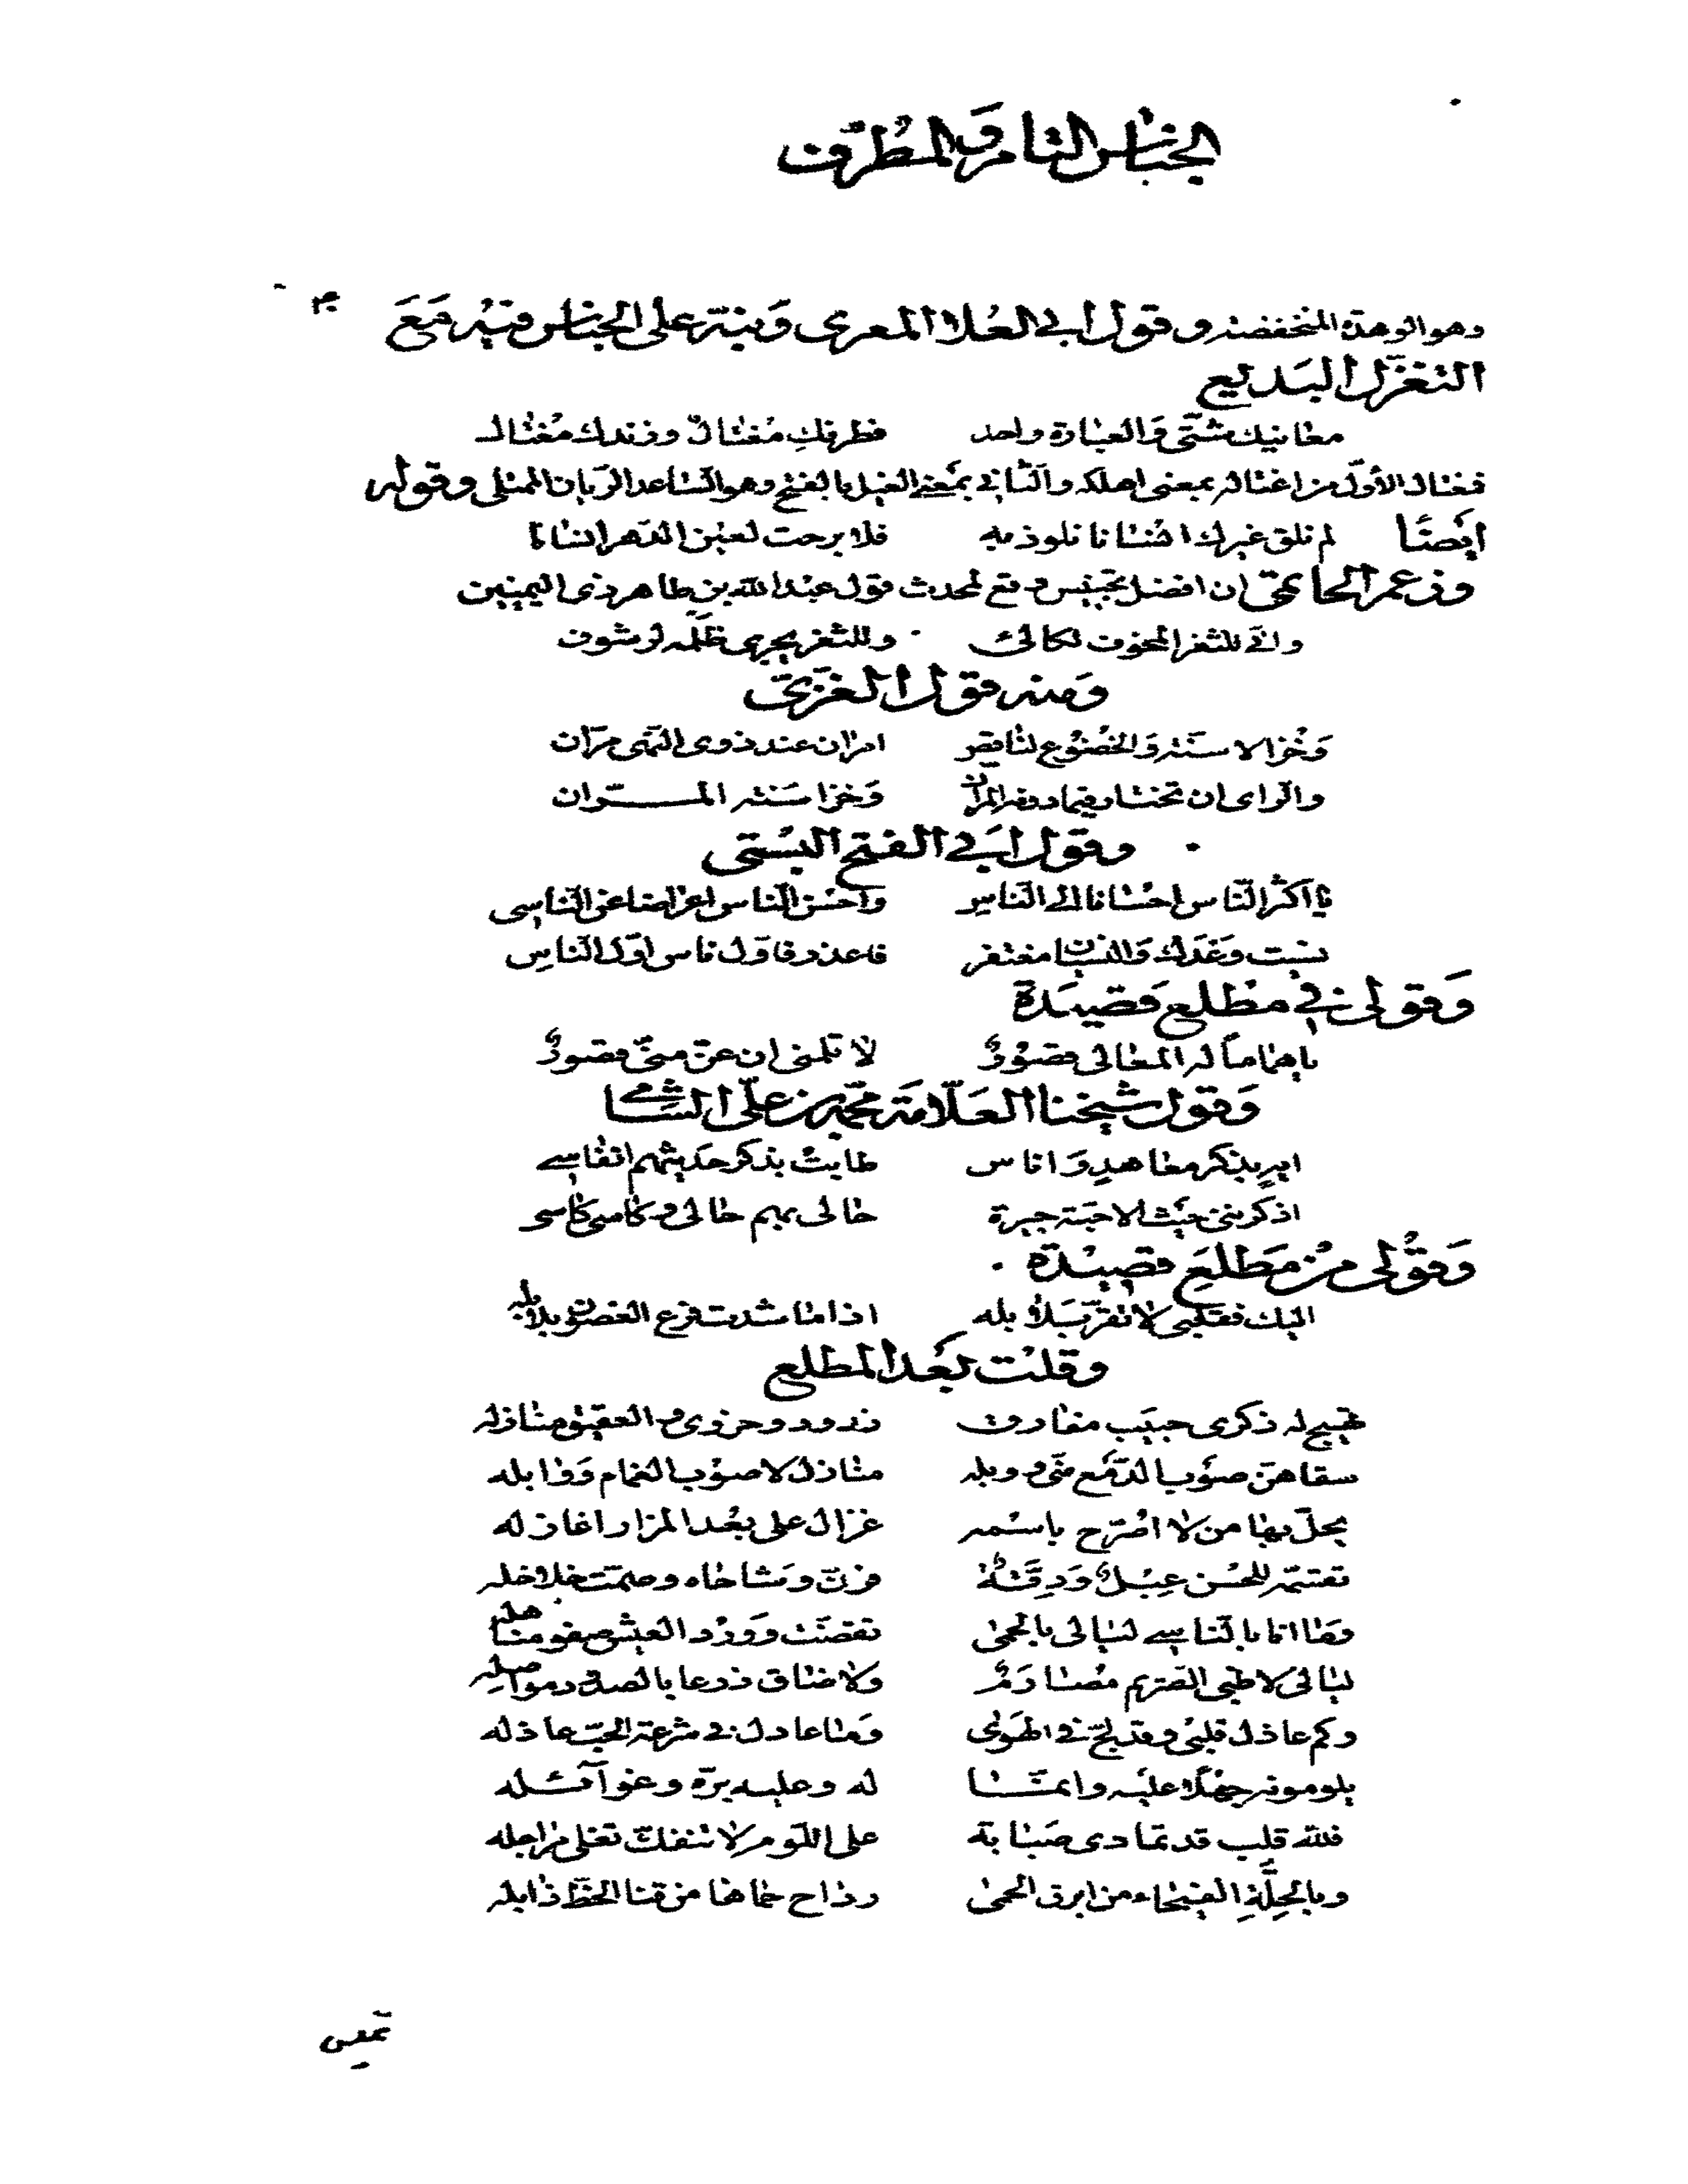 الجناس التام والمطرف
وهو الوهدة المنخفضة وقول ابي العلا المعرى وبنية على الجناس فيه مع
التغزل البديع
معانيك شتى والعبارة واحد فطرفك مغتال وزندك مغتال
فغتال الأول من اغتاله بمعنى اهلكه والثاني بمعنى الغيل بالفتح وهو الساعد الريان الممتلى وقوله
ايضا لم نلق غيرك انسانا نلوذ به فلا برحت لعين الدهر انسانا
وزعم الحاتمى ان افضل تجنيس وقع لمحدث قول عبد الله بن طاهر ذى اليمينين
واني للثغر المخوف لكالئ وللثغر يجرى ظلمه لرشوف
ومنه قول الغزى
وخز الاسنة والخضوع لناقص امران عند ذوى النهى مران
والراى ان تختار فيما دونه المران وخز اسنة المران
وقول ابي الفتح البستى
يا اكثر الناس احسانا الى الناس واحسن الناس اعراضا عن الناسى
نسيت وعدك والنسيان مغتفر فاعذر فاول ناس اول الناس
وقولى في مطلع قصيدة
يا هماما له المعالى قصور لا تلمنى ان عن منى قصور
وقول شيخنا العلامة محمد بن على الشامي
ايه بذكر معاهد واناس طابت بذكر حديثهم انفاسي
اذكرننى حيث الاحبة جيرة حالى بهم حالى وكاسى كاسى
وقولى من مطلع قصيدة
اليك فقلبى لا تقر بلابله اذا ما شدت فوق الغصون بلابله
وقلت بعد المطلع
تهيج له ذكرى حبيب مفارق زرود وحزوى والعقيق منازله
سقاهن صوب الدمع منى ووبله منازل لا صوب الغمام ووابله
يحل بها من لا اصرح باسمه غزال على بعد المزار اغازله
تقسمه للحسن عبل ودقة فرن وشاحاه وصمت خلاخله
وما انا بالناسي ليالى بالحمى تقضت وورد العيش صفو مناهله
ليالى لا ظبى الصريم مصارم ولا ضاق ذرعا بالصدود مواصله
وكم عاذل قلبى وقد لج في الهوى وما عادل في شرعة الحب عاذله
يلومونه جهلا عليه وانما له وعليه بره وغوائله
فلله قلب قد تمادى صبابة على اللوم لا تنفك تغلى مراجله
وبالحلة الفيحاء من ابرق الحمى رداح حماها من قنا الخط ذابله
تميس